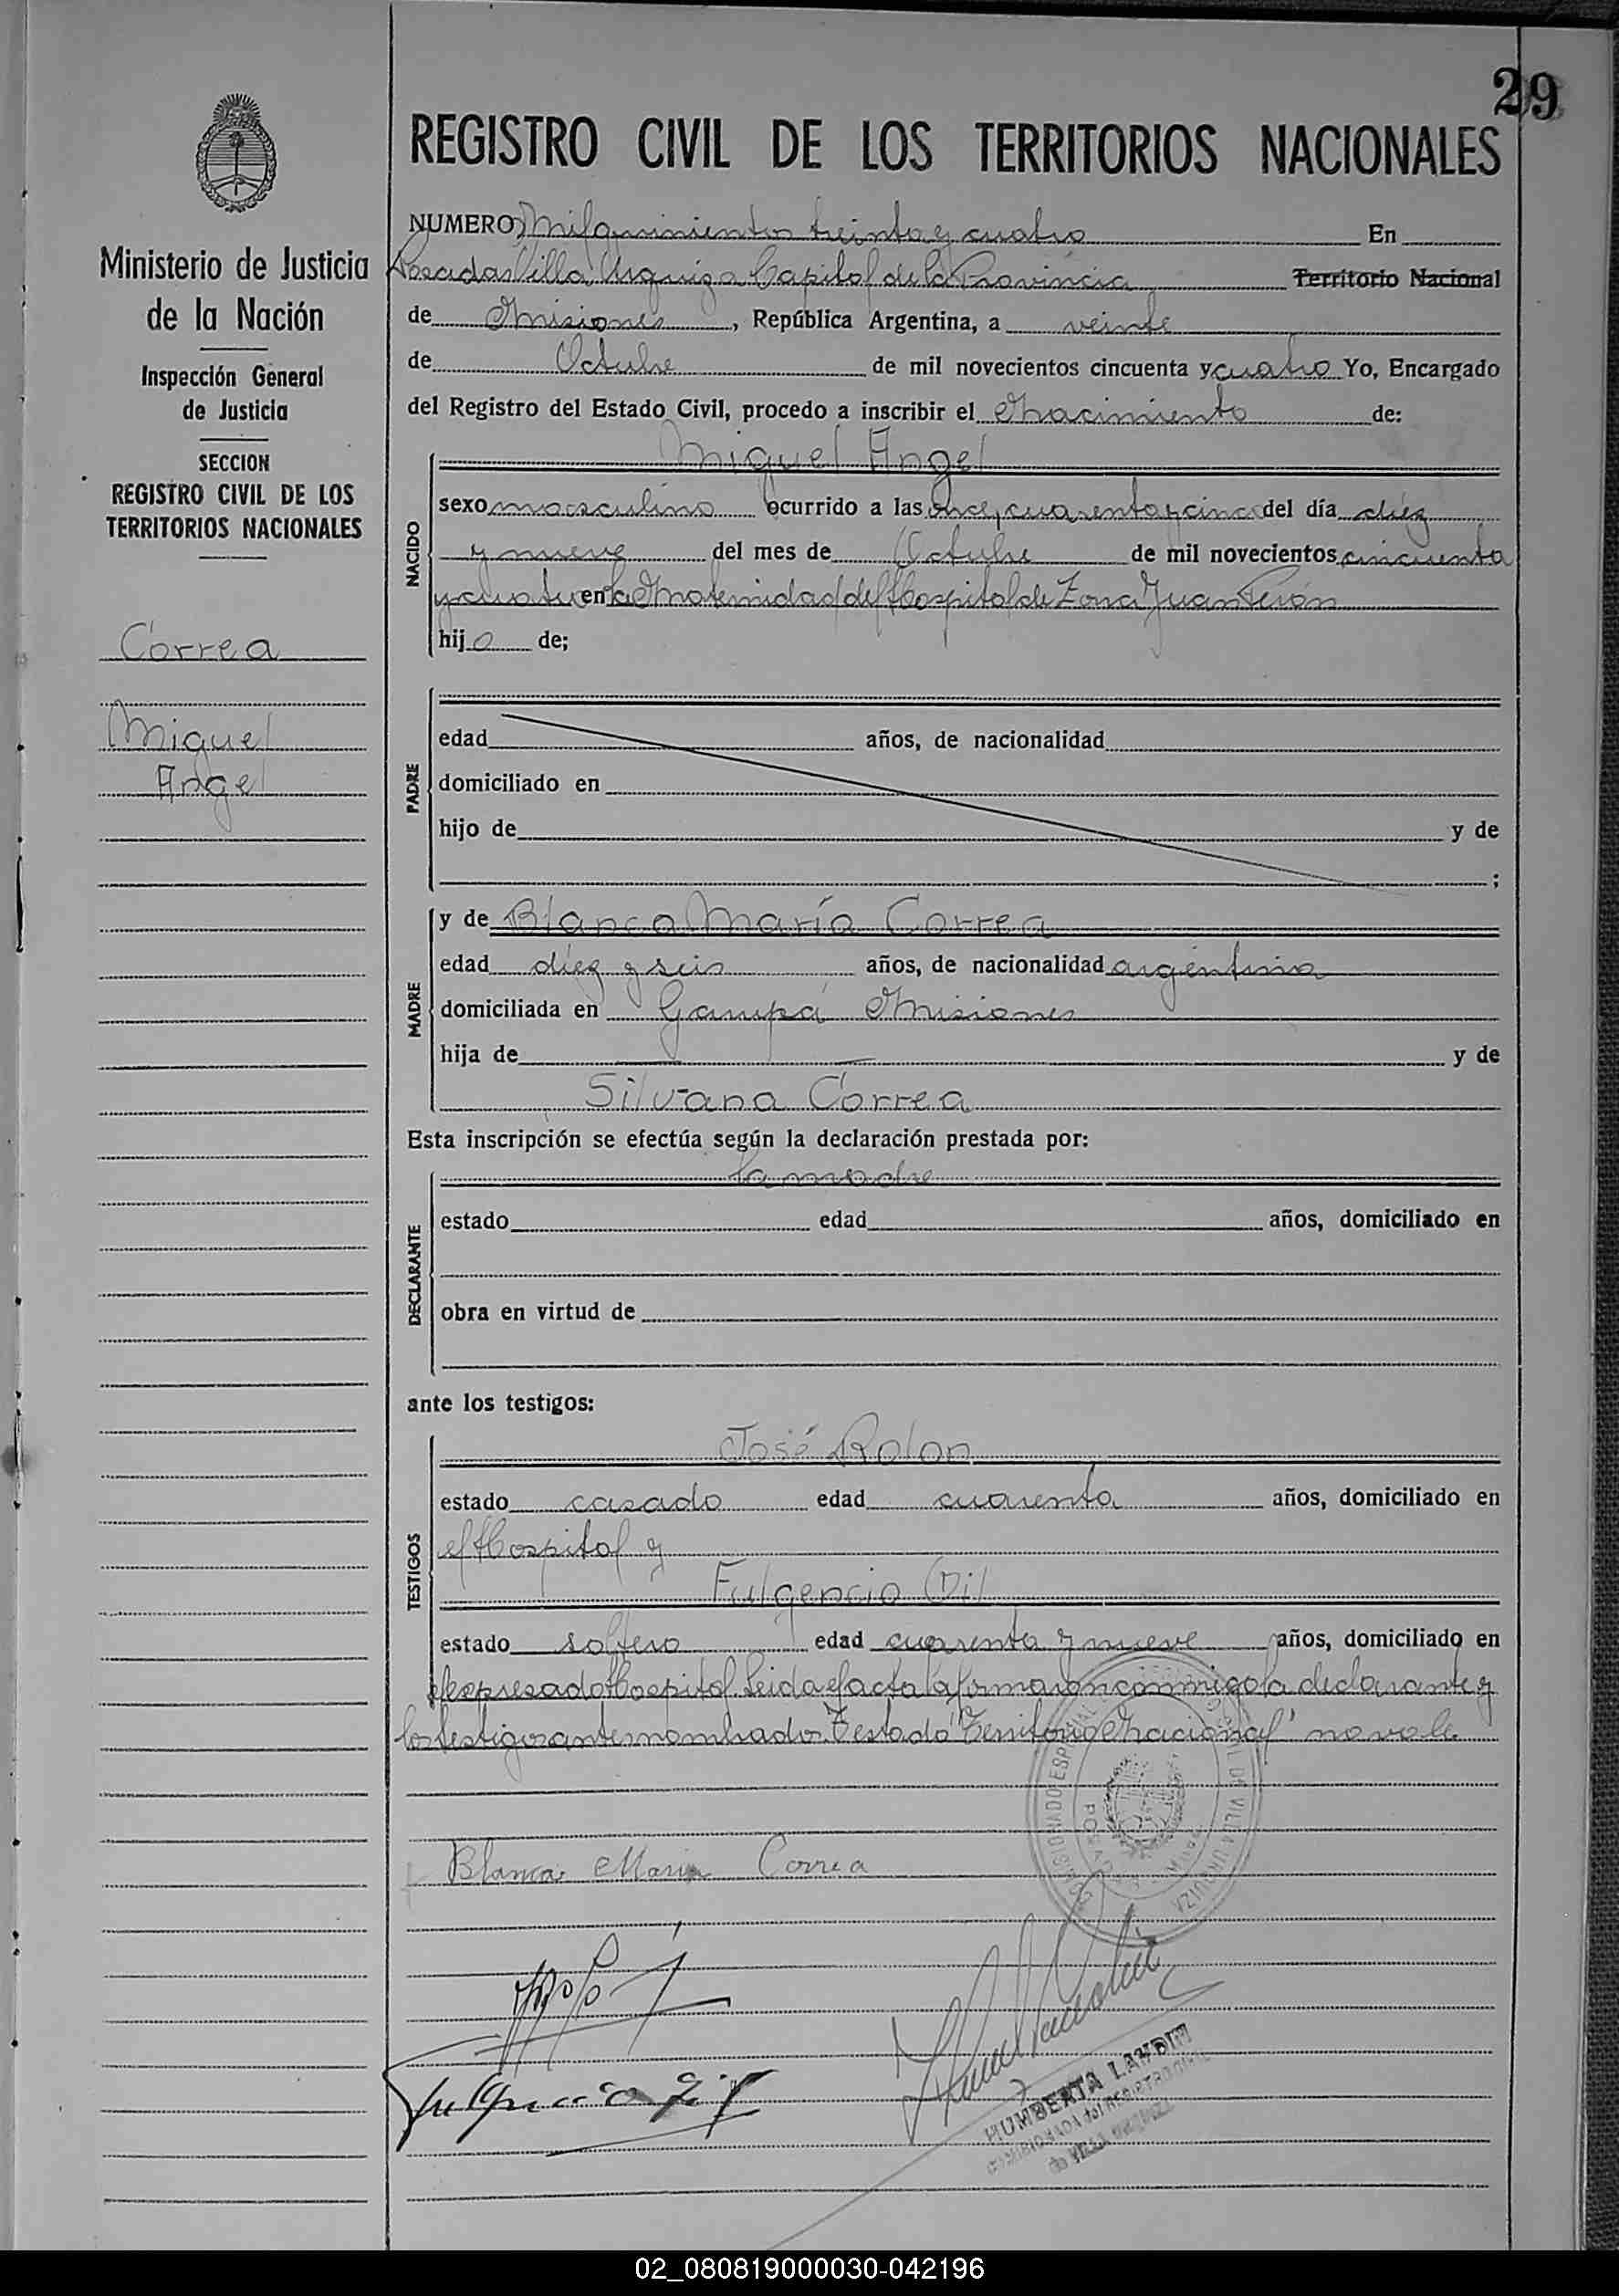 29
REGISTRO CIVIL DE LOS TERRITORIOS NACIONALES
Ministerio de Justicia
de la Nación
Inspección General
de Justicia
SECCION
REGISTRO CIVIL DE LOS
TERRITORIOS NACIONALES
Correa
Miguel
Angel
NUMERO Mil quinientos treinta y cuatro En
Posadas Villa Urquiza Capital de la Provincia Territorio Nacional
de Misiones, República Argentina, a veinte
de Octubre de mil novecientos cincuenta y cuatro Yo, Encargado
del Registro del Estado Civil, procedo a inscribir el Nacimiento de:
NACIDO
Miguel Angel
sexo masculino ocurrido a las once, cuarenta y cinco del día diez
y nueve del mes de Octubre de mil novecientos cincuenta
y cuatro en la Maternidad del Hospital de Zona Juan Perón
hijo de;
PADRE
edad años, de nacionalidad
domiciliado en
hijo de y de
;
MADRE
y de Blanca María Correa
edad diez y seis años, de nacionalidad argentina
domiciliada en Garupá Misiones
hija de y de
Silvana Correa
Esta inscripción se efectúa según la declaración prestada por:
DECLARANTE
la madre
estado edad años, domiciliado en
obra en virtud de
ante los testigos:
TESTIGOS
José Rolon
estado casado edad cuarenta años, domiciliado en
el Hospital y
Fulgencio Gil
estado soltero edad cuarenta y nueve años, domiciliado en
el expresado Hospital. Leida el acta la firmaron conmigo la declarante y
los testigos antes nombrado. Testado "Territorio Nacional" no vale
Blanca Maria Correa
Fulgencio Gil
HUMBERTA LANDIN
02_080819000030-042196